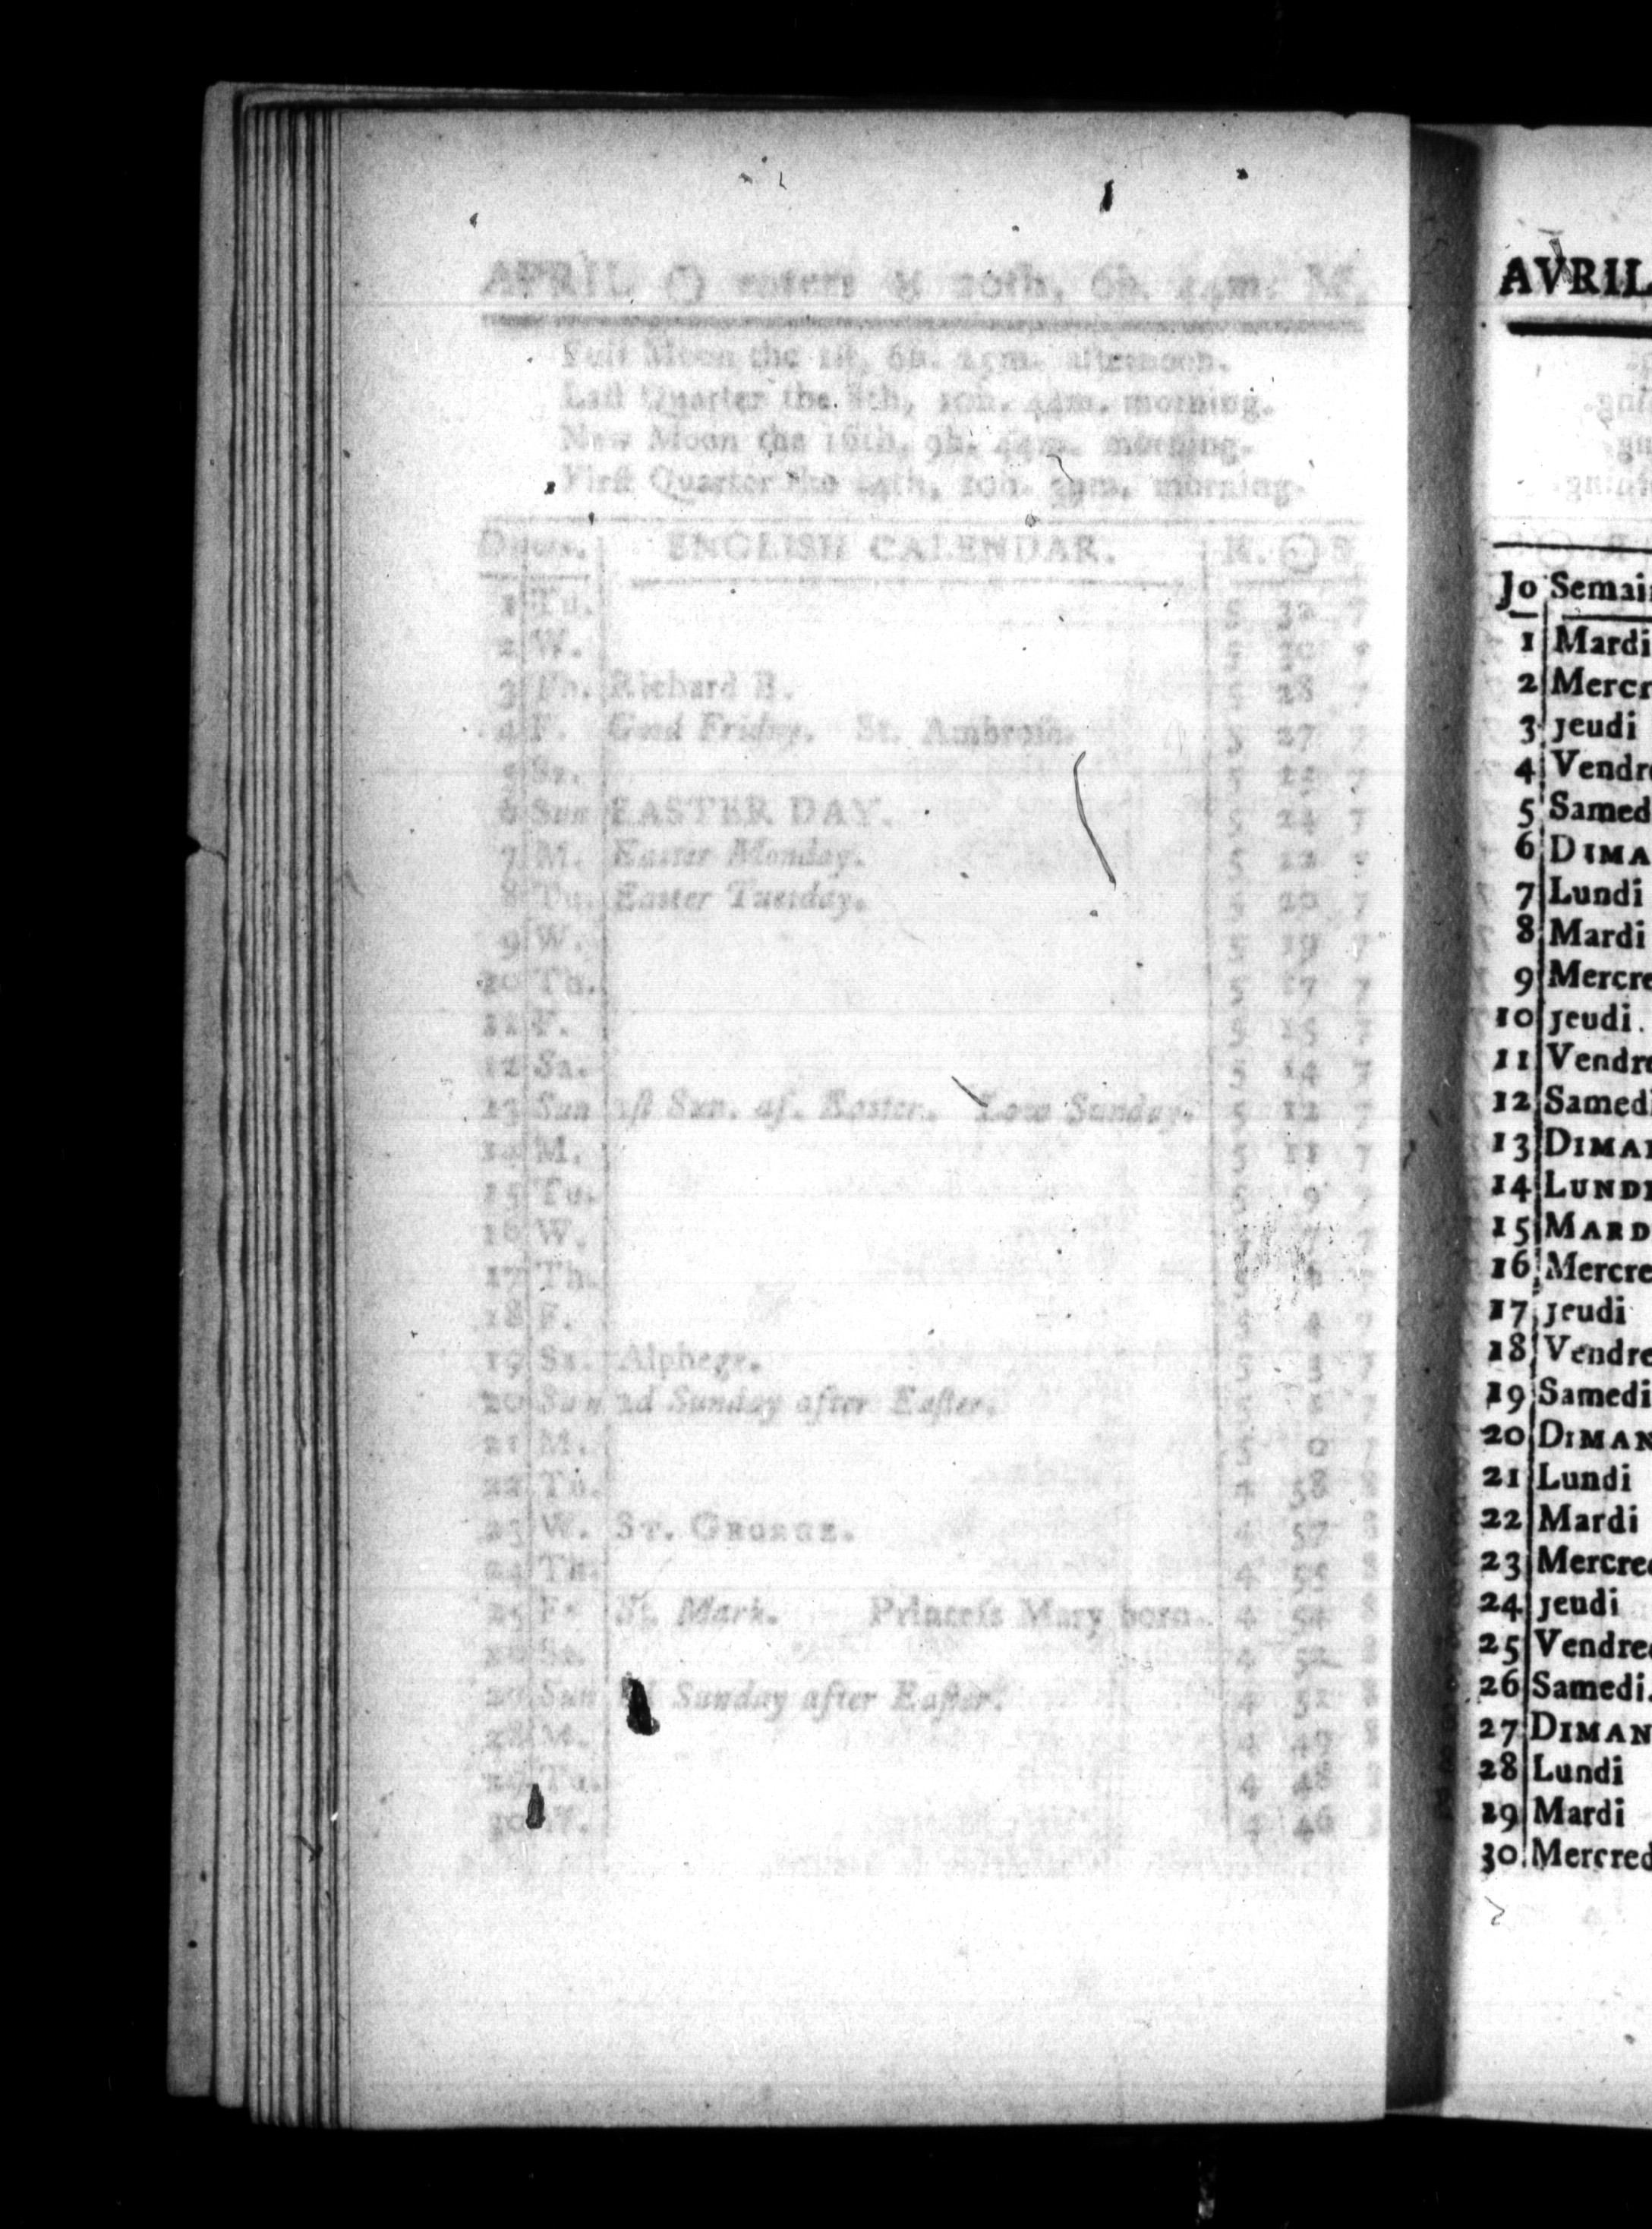 APRIL ☉ enters ♉ 20th, 6h. 44m. M.
Full Moon the 1st, 6h. 15m. afternoon.
Last Quarter the 8th, 10h. 44m. morning.
New Moon the 16th, 9h. 44m. morning.
First Quarter the 24th, 10h. morning.
Days. ENGLISH CALENDAR. R. ☉ S
1 Tu. 5 32 7
2 W. 5 30 7
3 Th. Richard B. 5 28 7
4 F. Good Friday. St. Ambrose. 5 27 7
5 Sa. 5 25 7
6 Sun EASTER DAY. 5 24 7
7 M. Easter Monday. 5 22 7
8 Tu. Easter Tuesday. 5 20 7
9 W. 5 19 7
10 Th. 5 17 7
11 F. 5 15 7
12 Sa. 5 14 7
13 Sun 1ſt Sun. af. Easter. Low Sunday. 5 12 7
14 M. 5 11 7
15 Tu. 5 9 7
16 W. 5 7 7
17 Th. 5 7
18 F. 5 4 7
19 Sa. Alphege. 5 3 7
20 Sun 2d Sunday after Eaſter. 5 7
21 M. 5 0 7
22 Tu. 4 58 8
23 W. ST. GEORGE. 4 57 8
24 Th. 4 55 8
25 F. St. Mark. Princeſs Mary born. 4 54 8
26 Sa. 4 52 8
27 Sun Sunday after Eaſter. 4 8
28 M. 4 49 8
29 Tu. 4 48 8
30 W. 4 46 8
AVRIL
Jo Semai
1 Mardi
2 Mercr
3 jeudi
4 Vendre
5 Samed
6 DIMA
7 Lundi
8 Mardi
9 Mercre
10 jeudi.
11 Vendre
12 Samedi
13 DIMAN
14 LUNDI
15 MARD
16 Mercre
17 jeudi
18 Vendre
19 Samedi
20 DIMAN
21 Lundi
22 Mardi
23 Mercred
24 jeudi
25 Vendred
26 Samedi.
27 DIMAN
28 Lundi
29 Mardi
30 Mercred